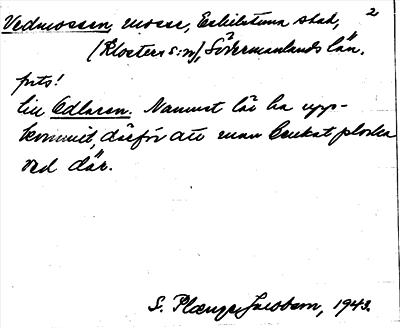 Vedmossen, mosse, Eskilstuna stad, 2
(Klosters s:n), Södermanlands län.
prts!
till Edlaren. Namnet lär ha upp-
kommit, därför att man brukat plocka
ved där.
S. Plænge Jacobson, 1943.